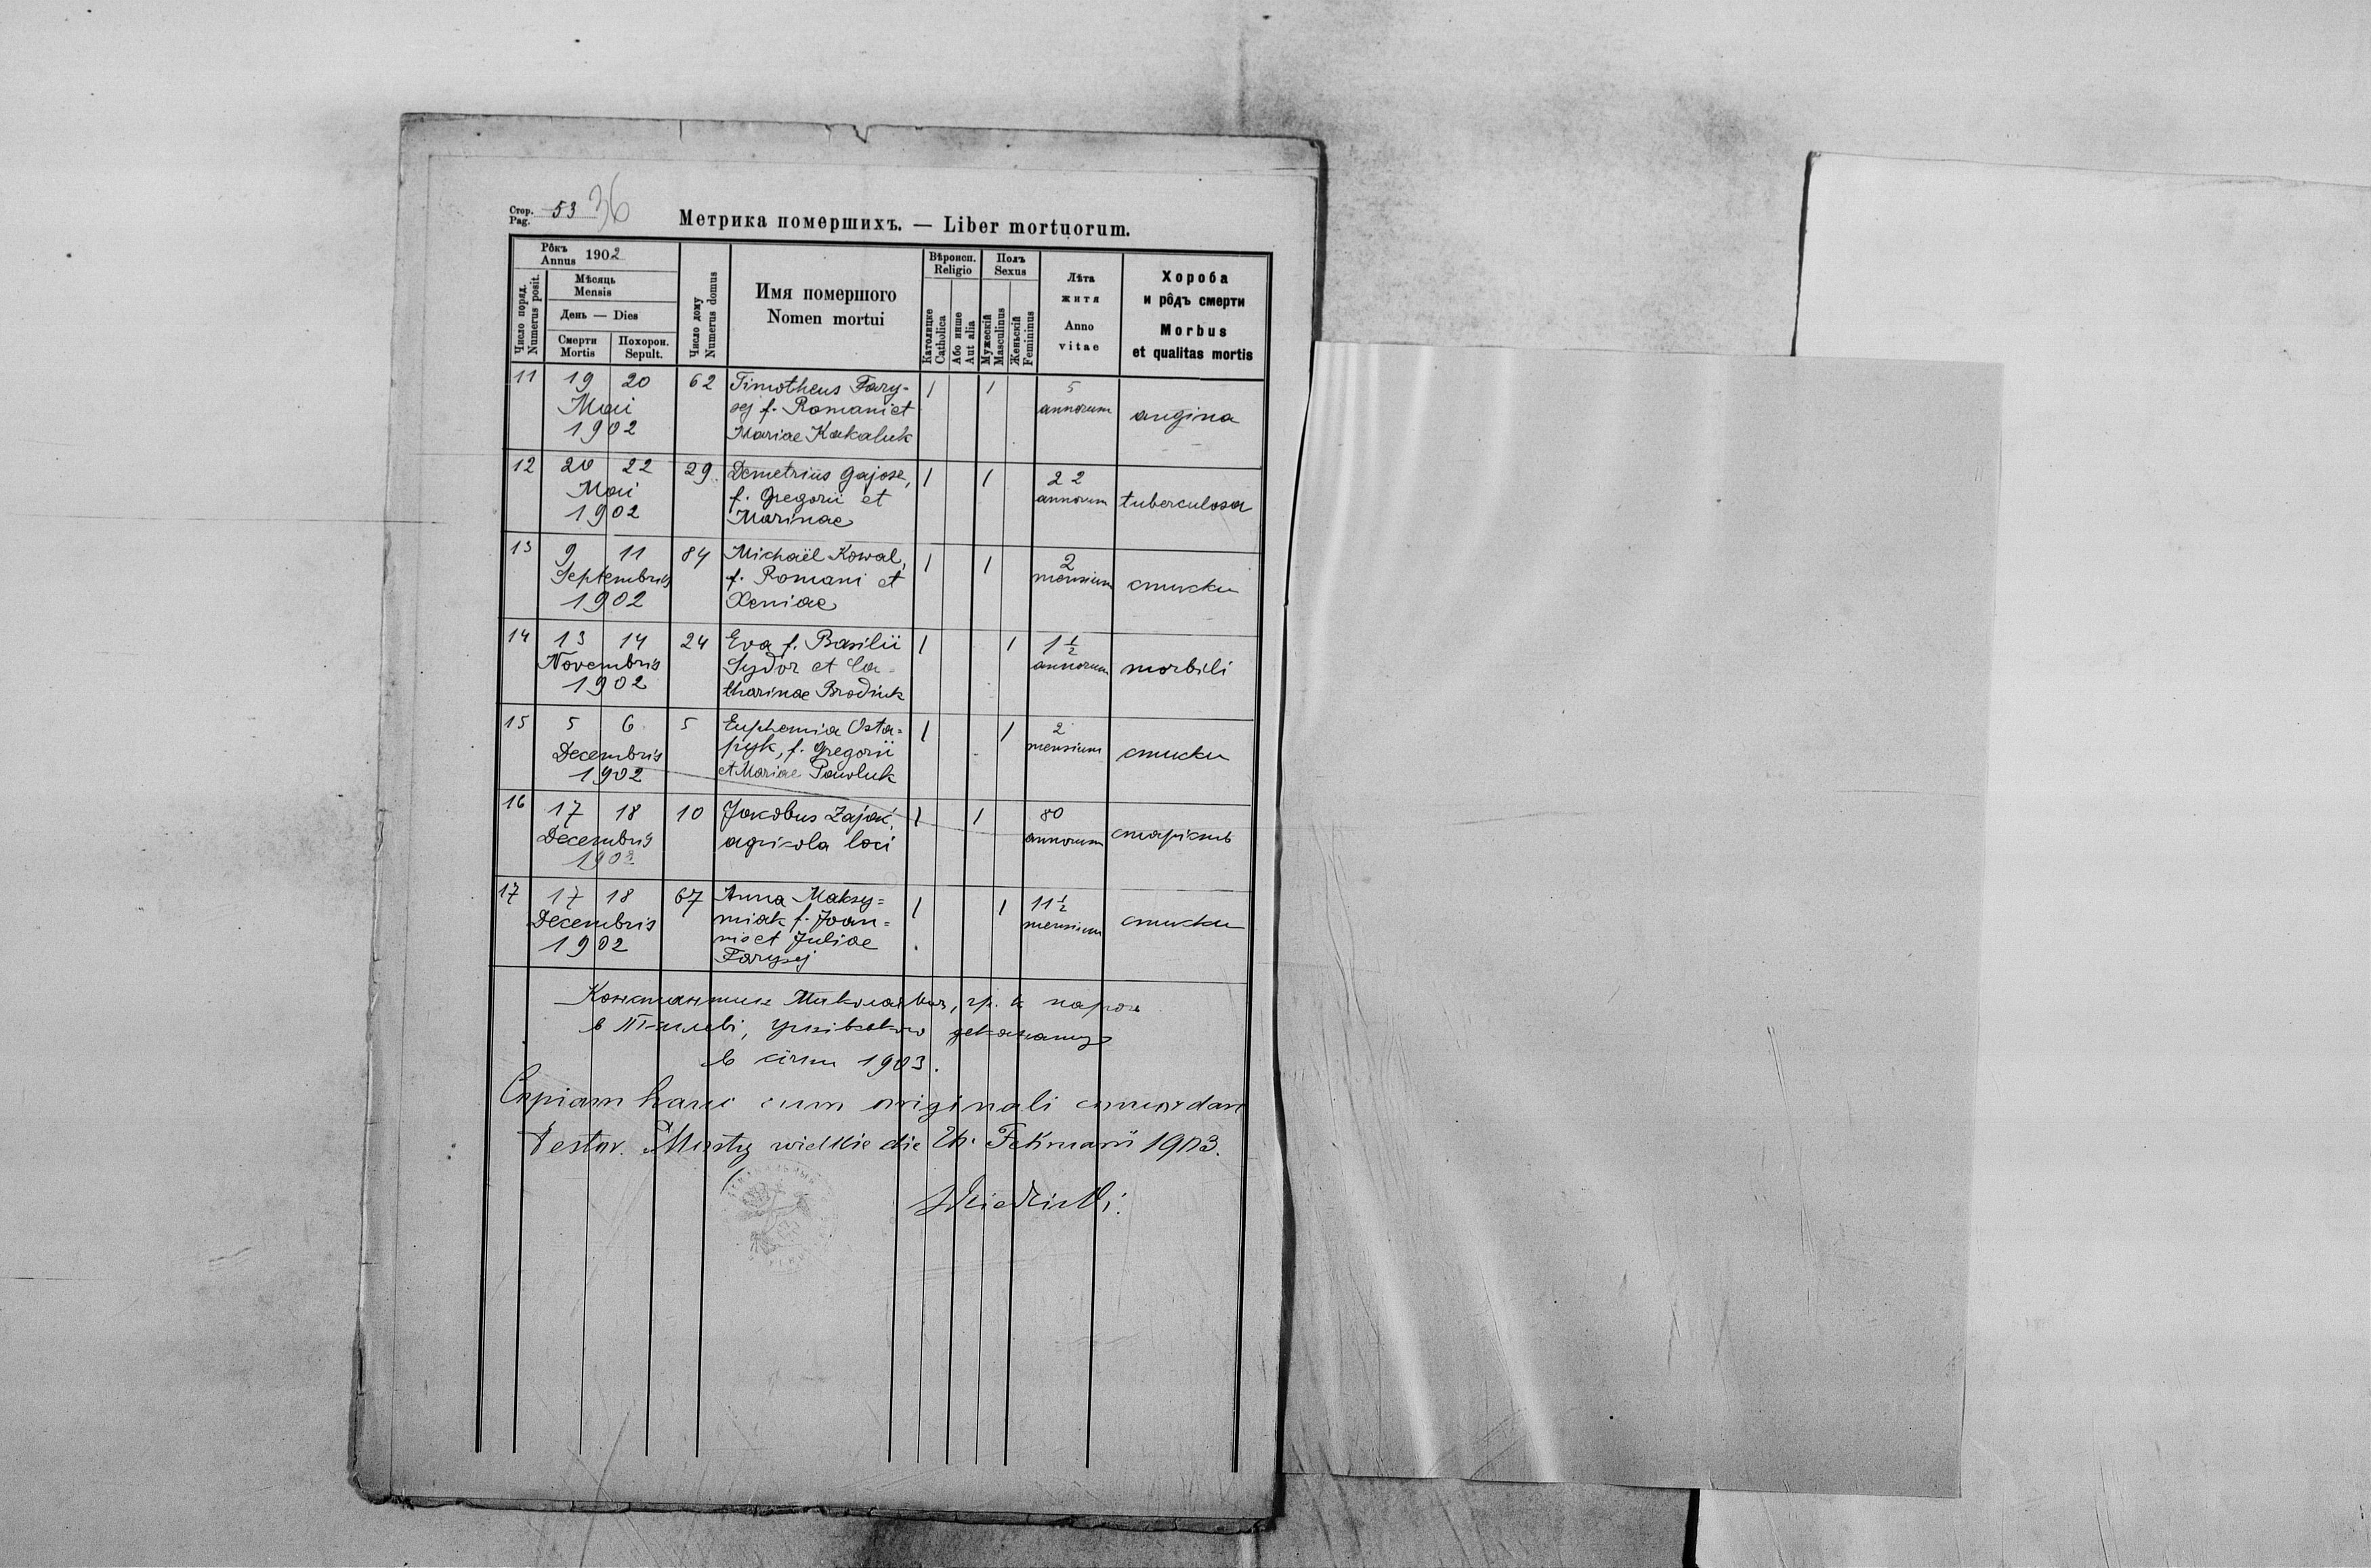 Стор. Pag. 53 36
Метрика померших. — Liber mortuorum.
Рôкъ Annus 1902
Число поряд. Numerus posit.
Мѣсяць Mensis
День — Dies
Смерти Mortis
Похорон. Sepult.
Число дому Numerus domus
Имя помершого Nomen mortui
Вѣроисп. Religio
Католицке Catholica
Або инше Aut alia
Полъ Sexus
Мужескій Masculinus
Женьскій Femininus
Лѣта житя Anno vitae
Хороба и рôдъ смерти Morbus et qualitas mortis
11 19 20 62 Timotheus Fary- 1 1 5
Maii sej f. Romani et annorum angina
1902 Mariae Kakaluk
12 20 22 29 Demetrius Gajosz, 1 1 22
Maii f. Gregorii et annorum tuberculosa
1902 Marinae
13 9 11 84 Michaël Kowal, 1 1 2
Septembris f. Romani et mensium смиски
1902 Xeniae
14 13 14 24 Eva f. Basilii 1 1 1½
Novembris Sydor et Ca- annorum morbili
1902 tharinae Brodiuk
15 5 6 5 Euphemia Osta= 1 1 2
Decembris pyk, f. Gregorii mensium смиски
1902 et Mariae Pawluk
16 17 18 10 Jakobus Zając, 1 1 80
Decembris agricola loci annorum старість
1902
17 17 18 67 Anna Maksy= 1 1 11½
Decembris miak f. Joan= mensium смиски
1902 nis et Juliae
Farysej
Константин гр. к. парох
в деканату
в січни 1903.
Copiam hanc cum originali concordare
testor. Mosty wielkie die Februarii 1903.